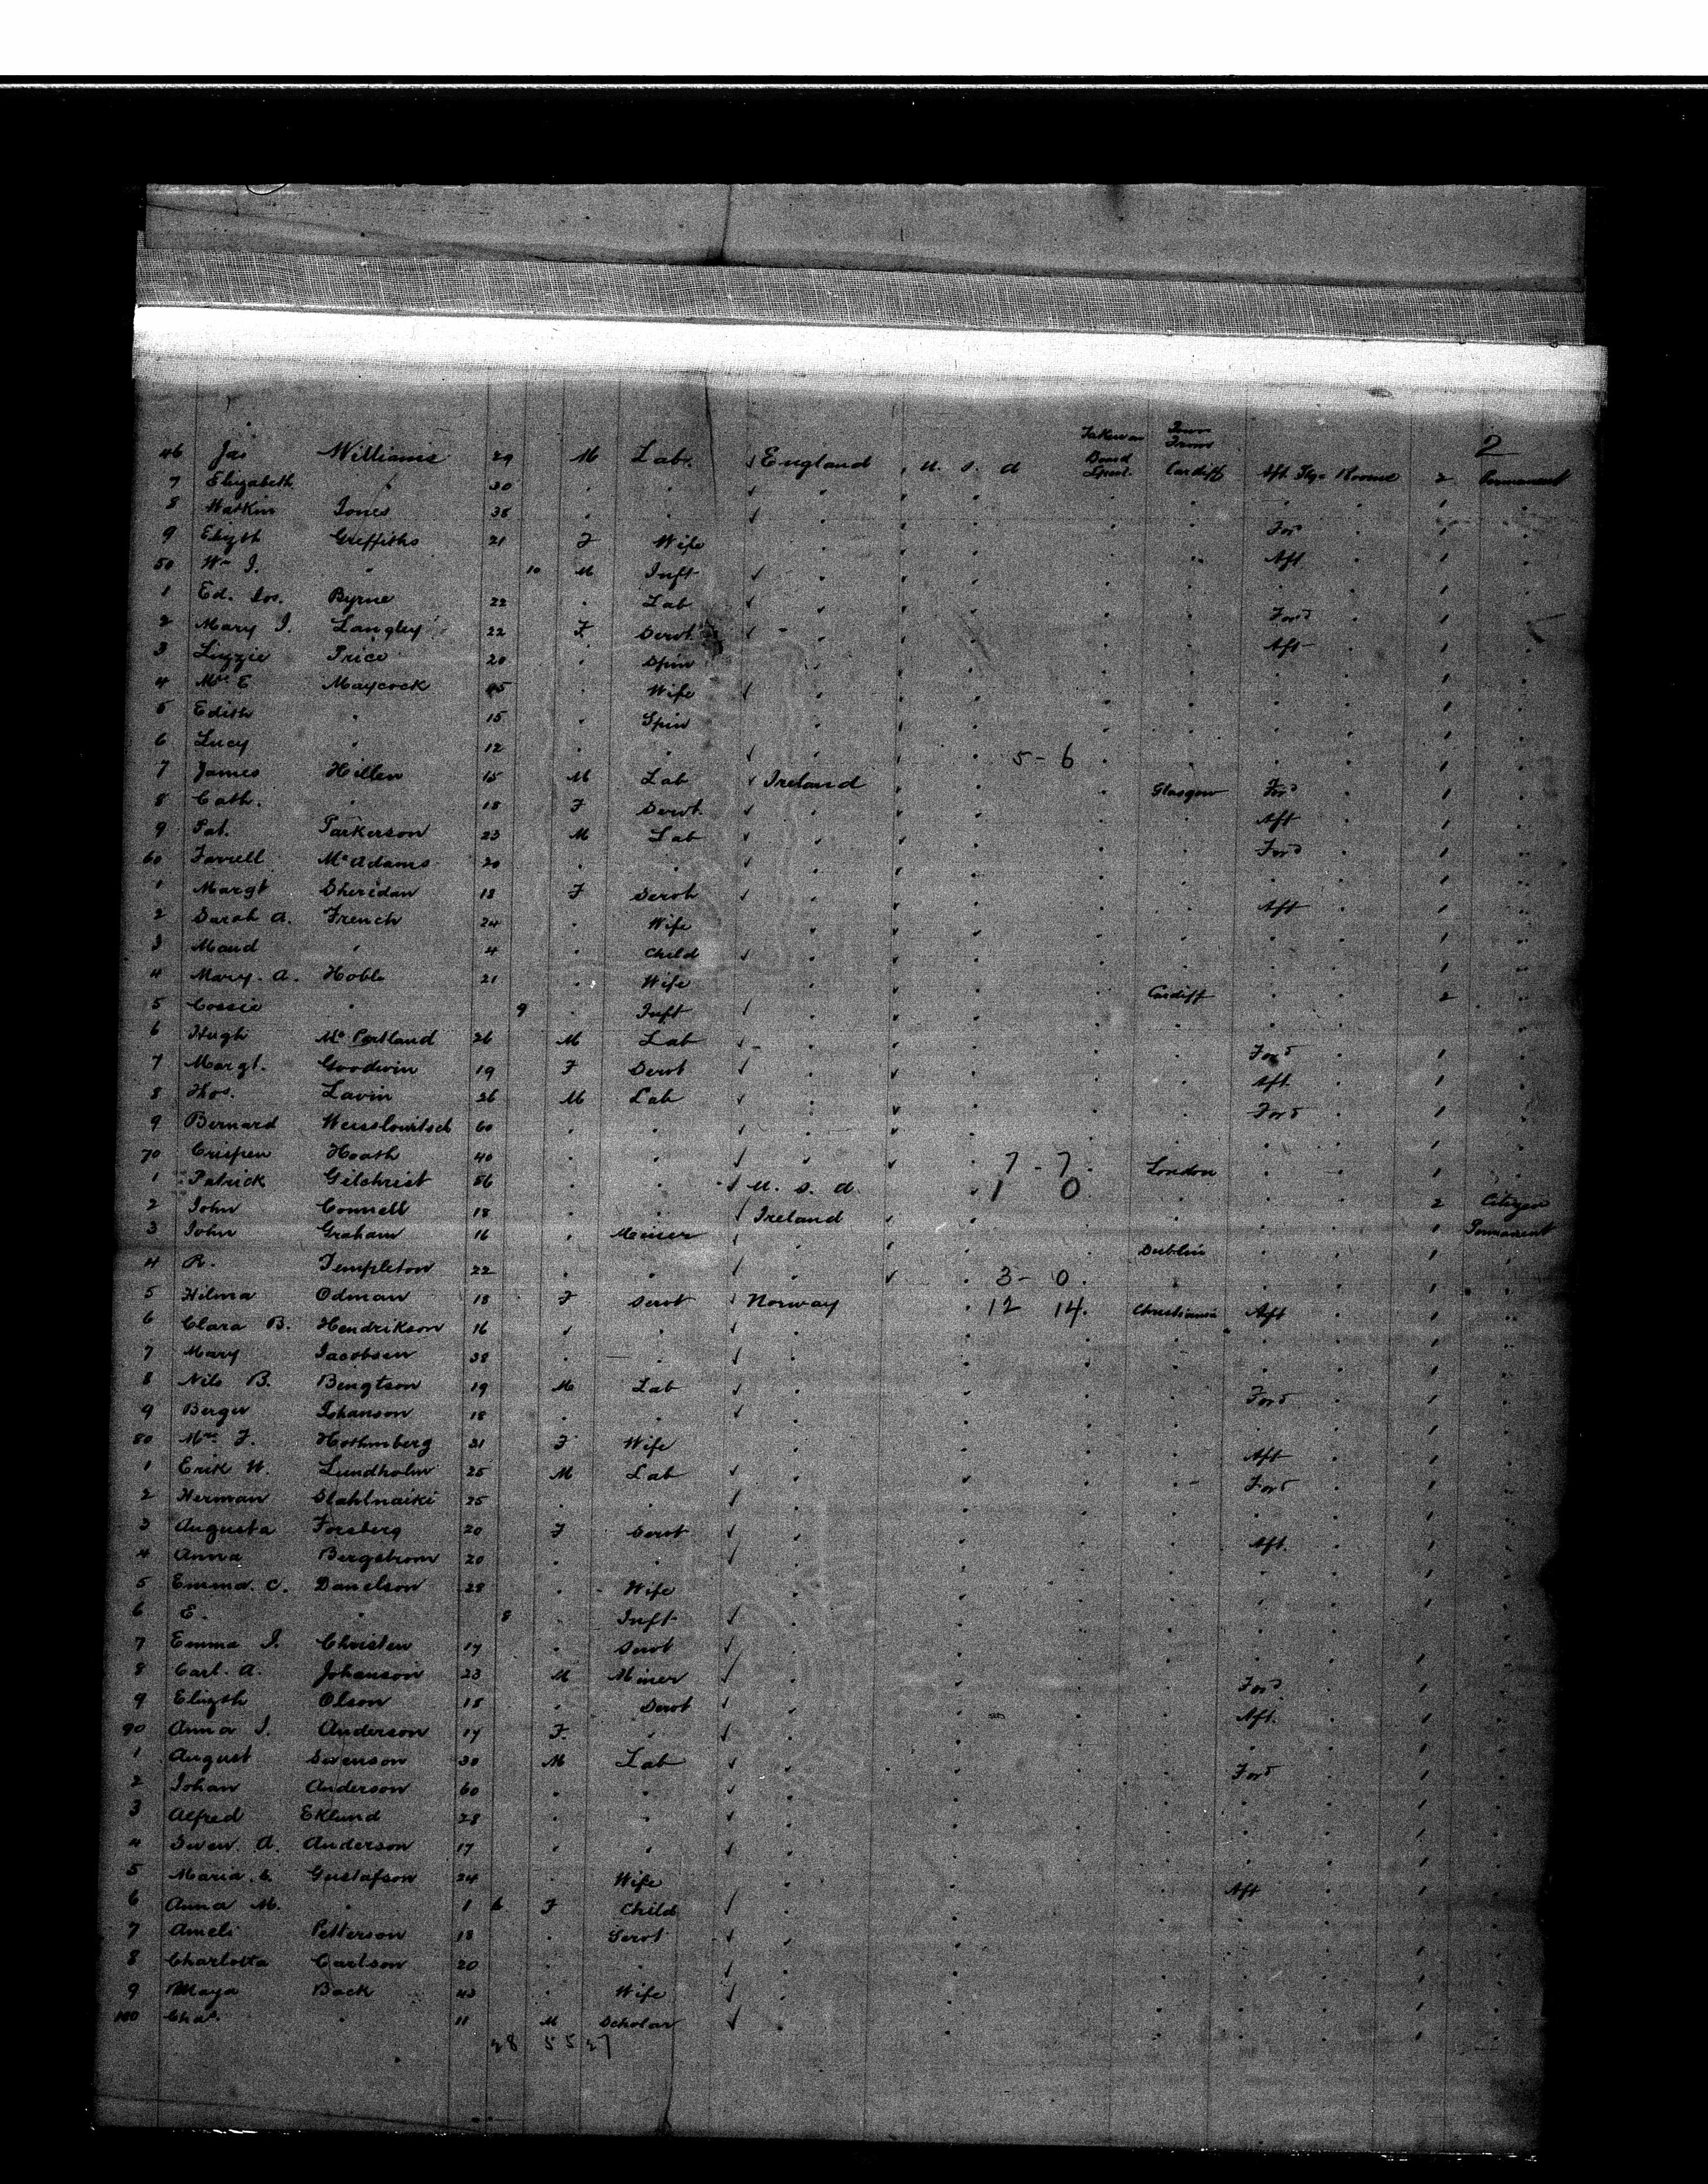 2
Taken on Board Town From
46 Jas Williams 29 M Lab. England U. S. A Cardiff Aft. Stge Rooms 2 Permanent
7 Elizabeth " 30 " " " 1 "
8 Watkin Jones 38 " " " Ford 1 "
9 Elizth Griffiths 21 F Wife " Aft 1 "
50 Wm J. " 10 M Inft " 1 "
1 Ed. Jos. Byrne 22 " Lab " Ford 1 "
2 Mary J. Langley 22 F Servt " Aft 1 "
3 Lizzie Price 20 " Spin " 1 "
4 Mrs E Maycock 45 " Wife " 1 "
5 Edith " 15 " Spin " 1 "
6 Lucy " 12 " " " 5-6 1 "
7 James Hillen 15 M Lab Ireland " Glasgow Ford 1 "
8 Cath. " 18 F Servt " Aft 1 "
9 Pat. Parkerson 23 M Lab " Ford 1 "
60 Farrell McAdams 20 " " " 1 "
1 Margt Sheridan 18 F Servt " Aft 1 "
2 Sarah A. French 24 " Wife " 1 "
3 Maud " 4 " Child " 1 "
4 Mary. A. Hoble 21 " Wife " Cardiff " 2 "
5 Cossie " 9 " Inft " "
6 Hugh McPartland 26 M Lab " Ford 1 "
7 Margt. Goodwin 19 F Servt " Aft. 1 "
8 Thos. Lavin 26 M Lab " Ford 1 "
9 Bernard 60 " " " 1 "
70 Crispen Heath 40 " " " 7-7 London " 1 "
1 Patrick Gilchrist 56 " " U. S. A. 1 0 " 2 Citizen
2 John Connell 18 " " Ireland " 1 Permanent
3 John Graham 16 " Miner " Dublin " 1 "
4 R. Templeton 22 " " " 3-0 " 1 "
5 Hilma Odman 18 F Servt Norway 12 14 Christiania Aft 1 "
6 Clara B. Hendrikson 16 " " " 1 "
7 Mary Jacobsen 38 " " " 1 "
8 Nils B. Bengtson 19 M Lab " Ford 1 "
9 Berger Johanson 18 " " " 1 "
80 Mrs J. Hothmberg 31 F Wife " Aft 1 "
1 Erik W. Lundholm 25 M Lab " Ford 1 "
2 Herman Stahlnaiki 25 " " " 1 "
3 Augusta Forsberg 20 F Servt " Aft. 1 "
4 Anna Bergstrom 20 " " " 1 "
5 Emma. C. Danelson 28 " Wife " 1 "
6 E. " 8 " Inft "
7 Emma J. Christen 17 " Servt " 1 "
8 Carl. A. Johanson 23 M Miner " Ford 1 "
9 Elizth Olson 18 " Servt " Aft. 1 "
90 Anna J. Anderson 17 F. " " 1 "
1 August Svenson 30 M Lab " Ford 1 "
2 Johan Anderson 60 " " " 1 "
3 Alfred Eklund 28 " " " 1 "
4 Swen. A. Anderson 17 " " " 1 "
5 Maria. C. Gustafson 24 " Wife " Aft 1 "
6 Anna M. " 1 6 F Child "
7 Ameli Petterson 18 " Servt " 1 "
8 Charlotta Carlson 20 " " " 1 "
9 Maya Back 43 " Wife " 1 "
100 Chas. " 11 M Scholar " 1 "
28 55 27